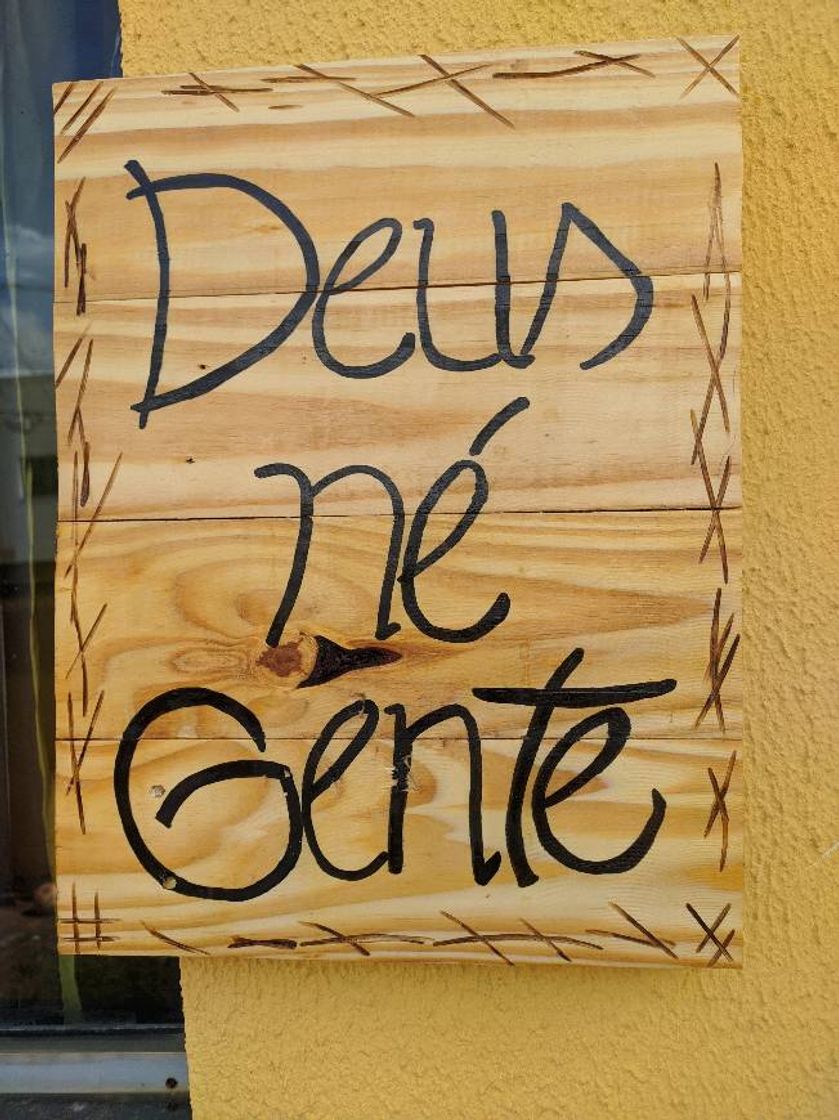 Deus
né
Gente